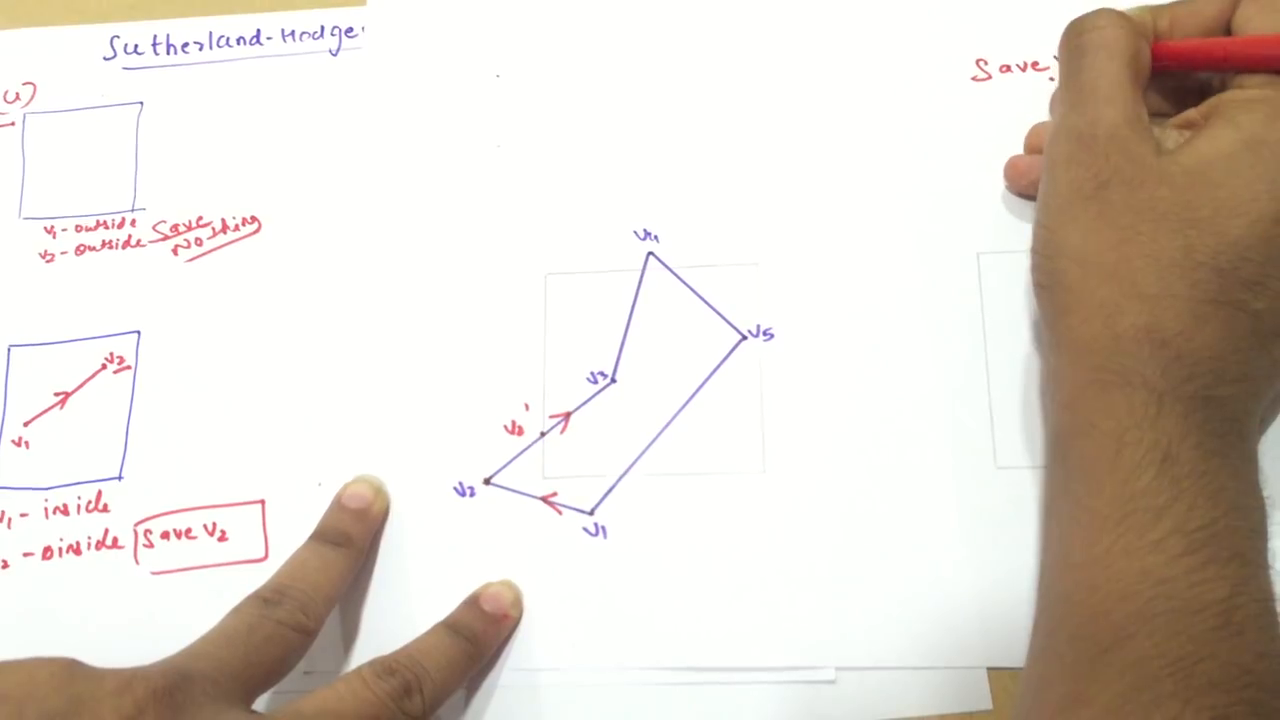 Sutherland-Hodge
v1-outside
v2-outside
Save
Nothing
v1
v2
v1- inside
-oinside
Save v2
v4
v5
v3
v2'
v2
v1
Save